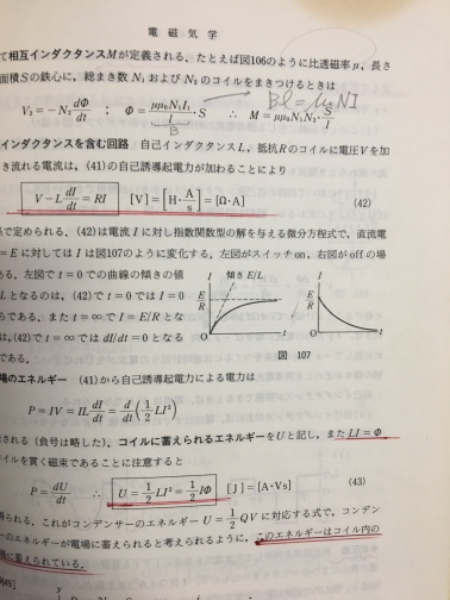 電 磁 気 学
て相互インダクタンスMが定義される．たとえば図106のように比透磁率μ，長さ
面積Sの鉄心に，総まき数N₁およびN₂のコイルをまきつけるときは
Bl = μ₀NI
V₂ = −N₂ dΦ/dt ； Φ = μμ₀N₁I₁/l ·S ∴ M = μμ₀N₁N₂ · S/l
B
インダクタンスを含む回路 自己インダクタンスL，抵抗Rのコイルに電圧Vを加
き流れる電流は，(41)の自己誘導起電力が加わることにより
V − L dI/dt = RI [V] = [H · A/s] = [Ω·A] (42)
で定められる．(42)は電流Iに対し指数関数型の解を与える微分方程式で，直流電
= E に対してはIは図107のように変化する．左図がスイッチon，右図がoffの場
ある．左図でt = 0での曲線の傾きの値
Lとなるのは，(42)でt = 0ではI = 0
らである．またt = ∞でI = E/Rとな
は，(42)でt = ∞ではdI/dt = 0となる
である．
I 傾きE/L
E/R
O t
I
E/R
O t
図 107
場のエネルギー (41)から自己誘導起電力による電力は
P = IV = IL dI/dt = d/dt (1/2 LI²)
される（負号は略した）．コイルに蓄えられるエネルギーをUと記し，またLI = Φ
イルを貫く磁束であることに注意すると
P = dU/dt ∴ U = 1/2 LI² = 1/2 IΦ [J] = [A·Vs] (43)
得られる．これがコンデンサーのエネルギー U = 1/2 QV に対応する式で，コンデン
ーのエネルギーが電場に蓄えられると考えられるように，このエネルギーはコイル内の
場に蓄えられている．